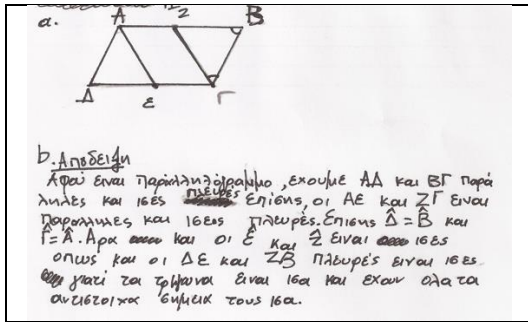 a.
A Z B
Δ ε Γ
b. Αποδειξη
Αφού ειναι παραλληλόγραμμο, εχουμε ΑΔ και ΒΓ παρά
λληλες και ισες πλευρές Επίσης, οι ΑΕ και ΖΓ ειναι
παραλληλες και ισες πλευρές. Επισης Δ̂ = Β̂ και
Γ̂ = Â. Αρα και οι Ε̂ και Ζ̂ ειναι ισες
οπως και οι ΔΕ και ΖΒ πλευρές ειναι ισες
γιατί τα τρίγωνα ειναι ισα και εχουν ολα τα
αντιστοιχα σημεια τους ισα.